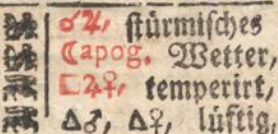 ☌♃, ſtürmiſches
☾apog. Wetter,
□♃♀, temperirt,
△♂, △♀, lüftig